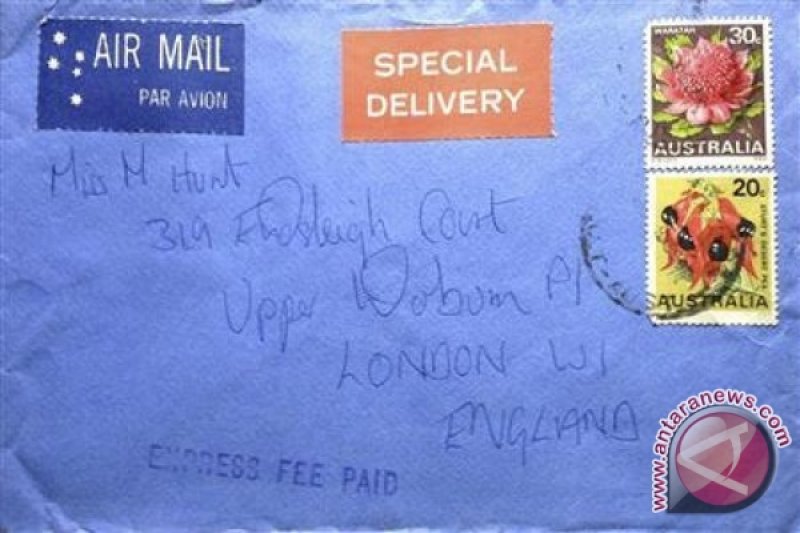 AIR MAIL
PAR AVION
SPECIAL
DELIVERY
WARATAH
30c
AUSTRALIA
20c
STURT'S DESERT PEA
AUSTRALIA
Miss M Hunt
319 Endsleigh Court
Upper Woburn Pl
LONDON W1
ENGLAND
EXPRESS FEE PAID
www.antaranews.com